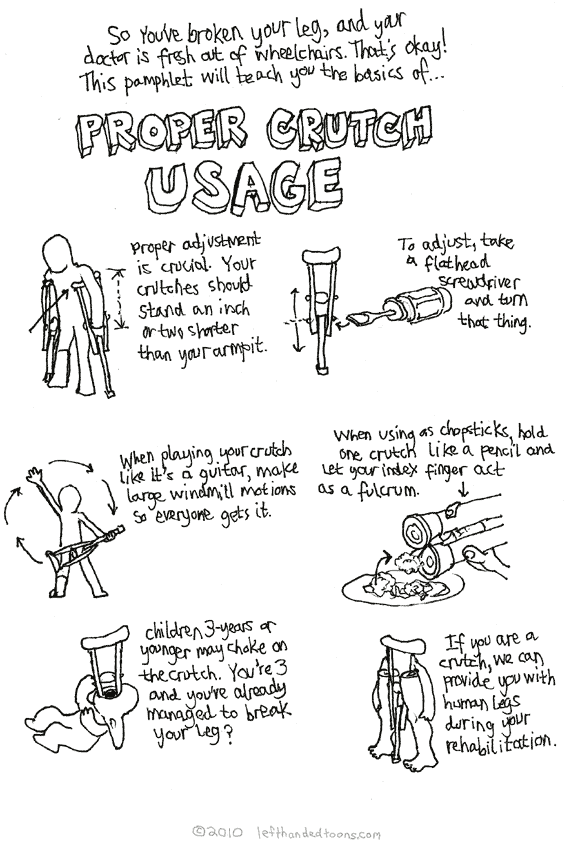 So You've broken your leg, and your
doctor is fresh out of wheelchairs. That's okay!
This pamphlet will teach you the basics of...
PROPER CRUTCH
USAGE
Proper adjustment
is crucial. Your
crutches should
stand an inch
or two shorter
than your armpit.
To adjust, take
a flathead
screwdriver
and turn
that thing.
When playing your crutch
like it's a guitar, make
large windmill motions
so everyone gets it.
When using as chopsticks, hold
one crutch like a pencil and
let your index finger act
as a fulcrum.
Children 3-years or
younger may choke on
the crutch. You're 3
and you've already
managed to break
your leg?
If you are a
crutch, we can
provide you with
human legs
during your
rehabilitation.
©2010 lefthandedtoons.com